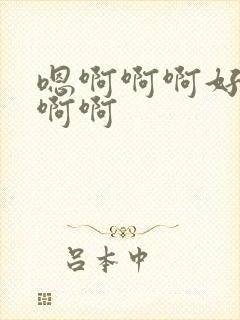 嗯啊啊啊好
啊啊
吕本中